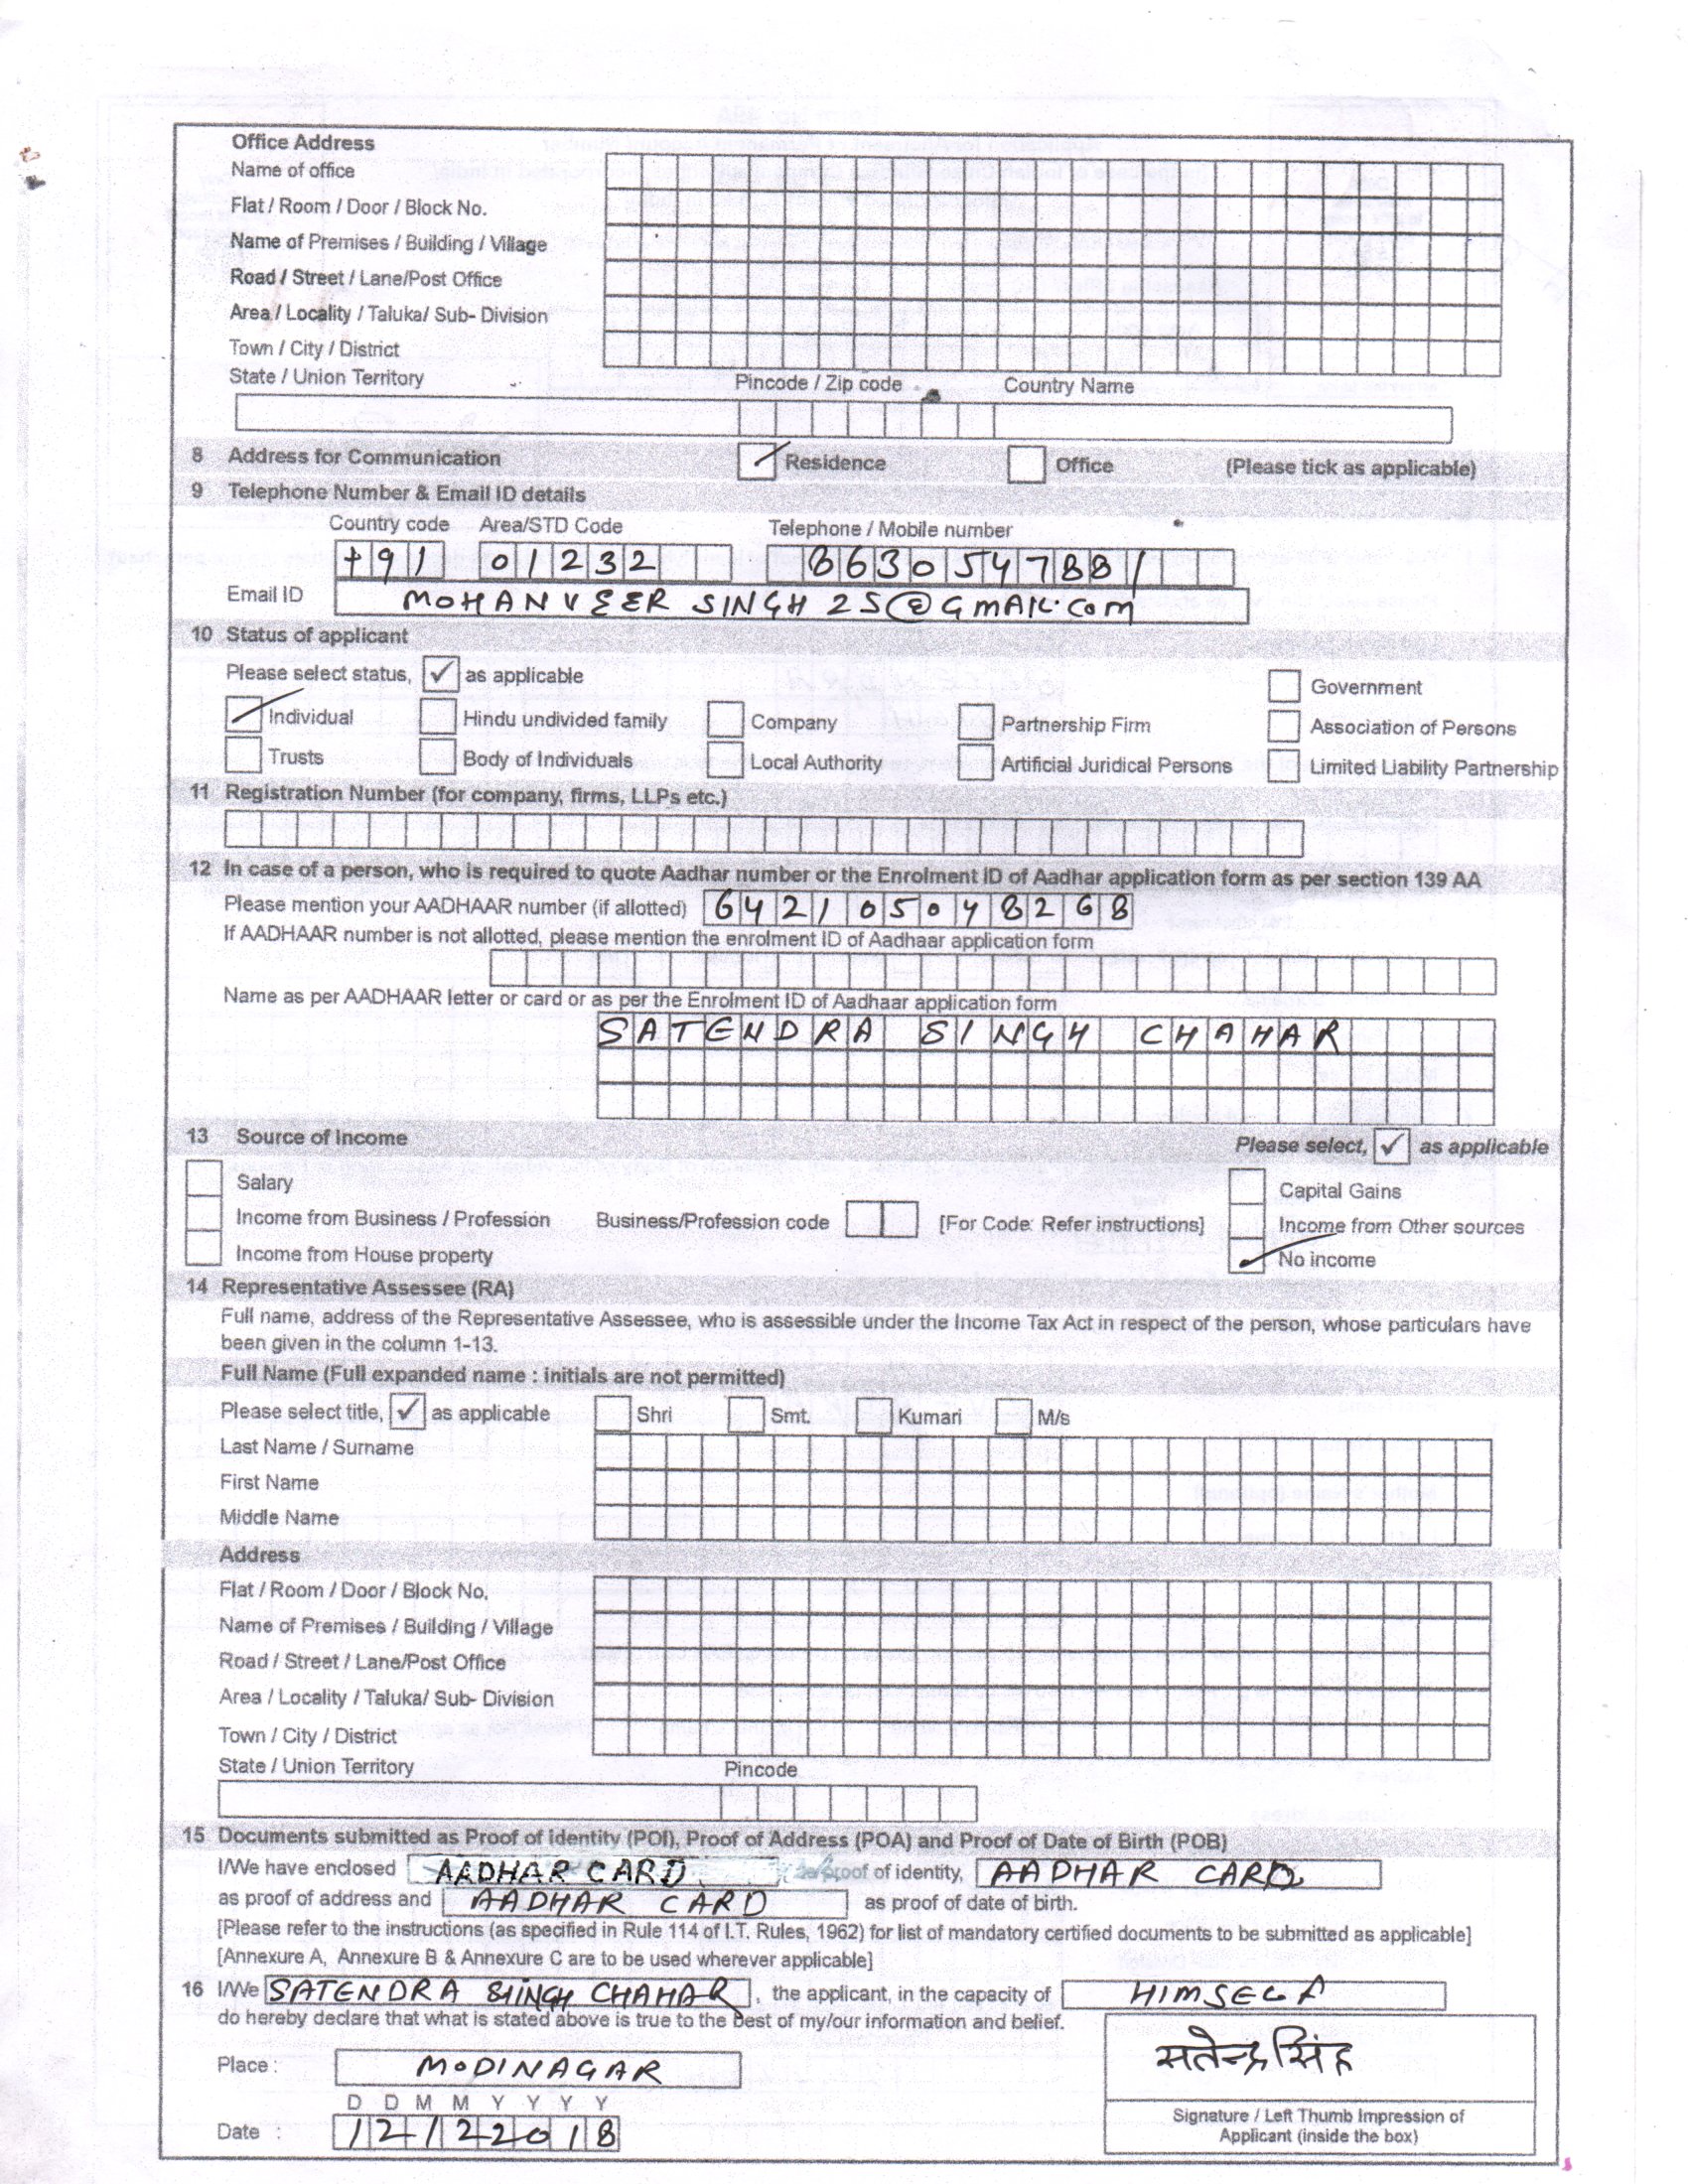 Office Address
Name of office
Flat / Room / Door / Block No.
Name of Premises / Building / Village
Road / Street / Lane/Post Office
Area / Locality / Taluka/ Sub- Division
Town / City / District
State / Union Territory Pincode / Zip code Country Name
8 Address for Communication Residence Office (Please tick as applicable)
9 Telephone Number & Email ID details
Country code Area/STD Code Telephone / Mobile number
+91 01232 8630547881
Email ID MOHANVEER SINGH 25@GMAIL.COM
10 Status of applicant
Please select status, ✓ as applicable Government
Individual Hindu undivided family Company Partnership Firm Association of Persons
Trusts Body of Individuals Local Authority Artificial Juridical Persons Limited Liability Partnership
11 Registration Number (for company, firms, LLPs etc.)
12 In case of a person, who is required to quote Aadhar number or the Enrolment ID of Aadhar application form as per section 139 AA
Please mention your AADHAAR number (if allotted) 642105048268
If AADHAAR number is not allotted, please mention the enrolment ID of Aadhaar application form
Name as per AADHAAR letter or card or as per the Enrolment ID of Aadhaar application form
SATENDRA SINGH CHAHAR
13 Source of Income Please select, ✓ as applicable
Salary Capital Gains
Income from Business / Profession Business/Profession code [For Code: Refer instructions] Income from Other sources
Income from House property No income
14 Representative Assessee (RA)
Full name, address of the Representative Assessee, who is assessible under the Income Tax Act in respect of the person, whose particulars have
been given in the column 1-13.
Full Name (Full expanded name : initials are not permitted)
Please select title, ✓ as applicable Shri Smt. Kumari M/s
Last Name / Surname
First Name
Middle Name
Address
Flat / Room / Door / Block No.
Name of Premises / Building / Village
Road / Street / Lane/Post Office
Area / Locality / Taluka/ Sub- Division
Town / City / District
State / Union Territory Pincode
15 Documents submitted as Proof of Identity (POI), Proof of Address (POA) and Proof of Date of Birth (POB)
I/We have enclosed AADHAR CARD as proof of identity, AADHAR CARD
as proof of address and AADHAR CARD as proof of date of birth.
[Please refer to the instructions (as specified in Rule 114 of I.T. Rules, 1962) for list of mandatory certified documents to be submitted as applicable]
[Annexure A, Annexure B & Annexure C are to be used wherever applicable]
16 I/We SATENDRA SINGH CHAHAR, the applicant, in the capacity of HIMSELF
do hereby declare that what is stated above is true to the best of my/our information and belief.
सतेन्द्र सिंह
Place : MODINAGAR
D D M M Y Y Y Y
Date : 12122018
Signature / Left Thumb Impression of
Applicant (inside the box)